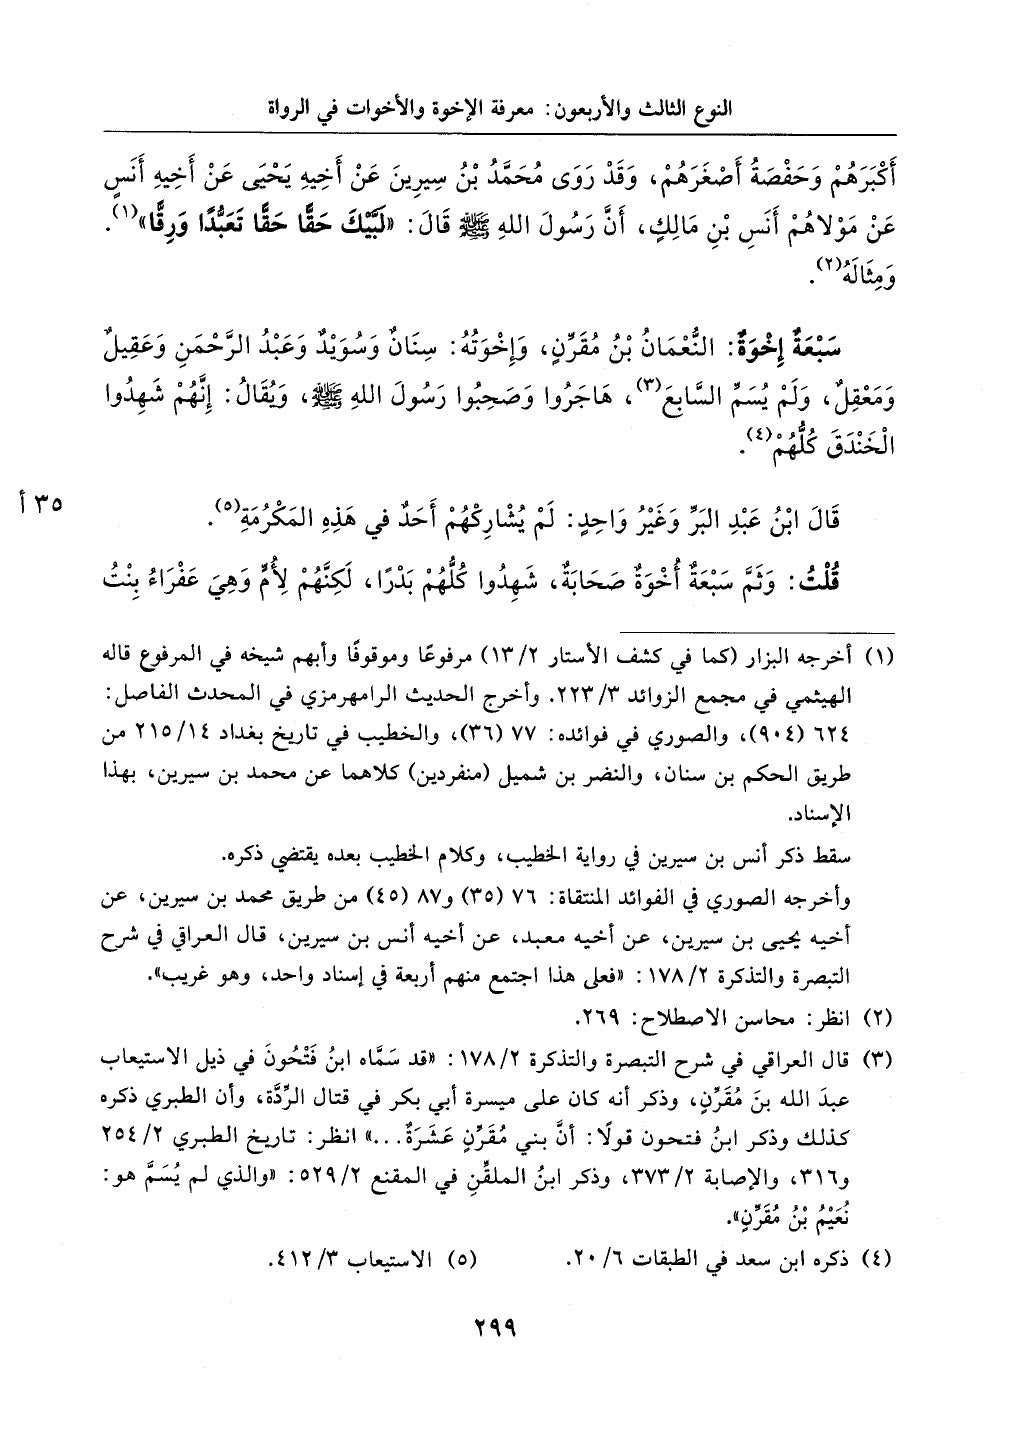 النوع الثالث والأربعون: معرفة الإخوة والأخوات في الرواة
أَكْبَرَهُمْ وَحَفْصَةُ أَصْغَرَهُمْ، وَقَدْ رَوَى مُحَمَّدُ بْنُ سِيرِينَ عَنْ أَخِيهِ يَحْيَى عَنْ أَخِيهِ أَنَسٍ
عَنْ مَوْلاهُمْ أَنَسِ بْنِ مَالِكٍ، أَنَّ رَسُولَ اللهِ ﷺ قَالَ: «لَبَّيْكَ حَقًّا حَقًّا تَعَبُّدًا وَرِقًّا»(١).
وَمِثَالَهُ(٢).
سَبْعَةٌ إِخْوَةٌ: النُّعْمَانُ بْنُ مُقَرِّنٍ، وَإِخْوَتُهُ: سِنَانٌ وَسُوَيْدٌ وَعَبْدُ الرَّحْمَنِ وَعَقِيلٌ
وَمَعْقِلٌ، وَلَمْ يُسَمِّ السَّابِعَ(٣)، هَاجَرُوا وَصَحِبُوا رَسُولَ اللهِ ﷺ، وَيُقَالُ: إِنَّهُمْ شَهِدُوا
الْخَنْدَقَ كُلُّهُمْ(٤).
قَالَ ابْنُ عَبْدِ البَرِّ وَغَيْرُ وَاحِدٍ: لَمْ يُشَارِكْهُمْ أَحَدٌ في هَذِهِ المَكْرُمَةِ(٥).
٣٥ أ
قُلْتُ: وَثَمَّ سَبْعَةٌ أُخْوَةٌ صَحَابَةٌ، شَهِدُوا كُلُّهُمْ بَدْرًا، لَكِنَّهُمْ لِأُمٍّ وَهِيَ عَفْرَاءُ بِنْتُ
(١) أخرجه البزار (كما في كشف الأستار ١٣/٢) مرفوعًا وموقوفًا وأبهم شيخه في المرفوع قاله
الهيثمي في مجمع الزوائد ٢٢٣/٣. وأخرج الحديث الرامهرمزي في المحدث الفاصل:
٦٢٤ (٩٠٤)، والصوري في فوائده: ٧٧ (٣٦)، والخطيب في تاريخ بغداد ٢١٥/١٤ من
طريق الحكم بن سنان، والنضر بن شميل (منفردين) كلاهما عن محمد بن سيرين، بهذا
الإسناد.
سقط ذكر أنس بن سيرين في رواية الخطيب، وكلام الخطيب بعده يقتضي ذكره.
وأخرجه الصوري في الفوائد المنتقاة: ٧٦ (٣٥) و٨٧ (٤٥) من طريق محمد بن سيرين، عن
أخيه يحيى بن سيرين، عن أخيه معبد، عن أخيه أنس بن سيرين، قال العراقي في شرح
التبصرة والتذكرة ١٧٨/٢: «فعلى هذا اجتمع منهم أربعة في إسناد واحد، وهو غريب».
(٢) انظر: محاسن الاصطلاح: ٢٦٩.
(٣) قال العراقي في شرح التبصرة والتذكرة ١٧٨/٢: «قد سَمَّاه ابنُ فَتْحُونَ في ذيل الاستيعاب
عبدَ الله بنَ مُقَرِّنٍ، وذكر أنه كان على ميسرة أبي بكر في قتال الرِّدَّة، وأن الطبري ذكره
كذلك وذكر ابنُ فتحون قولًا: أنَّ بني مُقَرِّن عَشَرَةٌ...» انظر: تاريخ الطبري ٢٥٤/٢
و٣١٦، والإصابة ٣٧٣/٢، وذكر ابنُ الملقِّنِ في المقنع ٥٢٩/٢: «والذي لم يُسَمَّ هو:
نُعَيْمُ بْنُ مُقَرِّنٍ».
(٤) ذكره ابن سعد في الطبقات ٢٠/٦. (٥) الاستيعاب ٤١٢/٣.
٢٩٩